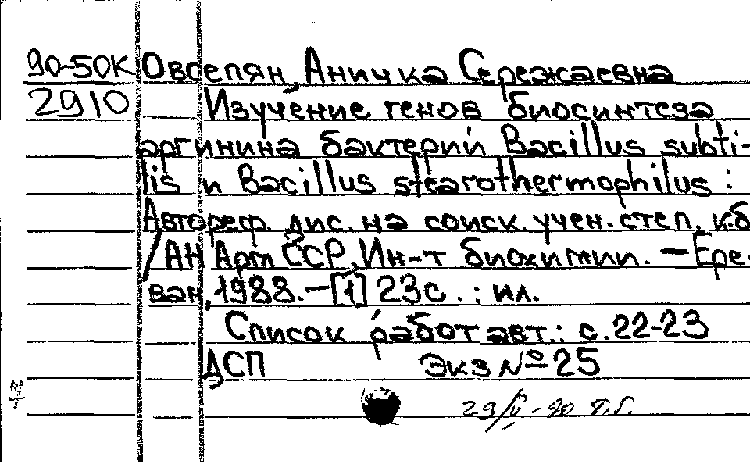 90-50К Овсепян, Аничка Сережаевна
2910 Изучение генов биосинтеза
аргинина бактерий Bacillus subti-
lis и Bacillus stearothermophilus :
Автореф. дис. на соиск. учен. степ. к.б
/АН Арм ССР, Ин-т биохимии. — Ере-
ван, 1988. — [1] 23 с. : ил.
Список работ авт.: с. 22-23
ДСП Экз № 25